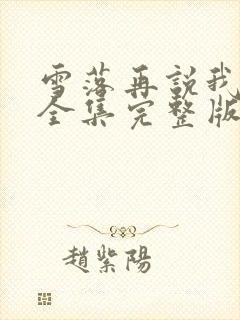 雪落再說我
全集完整版
趙紫陽